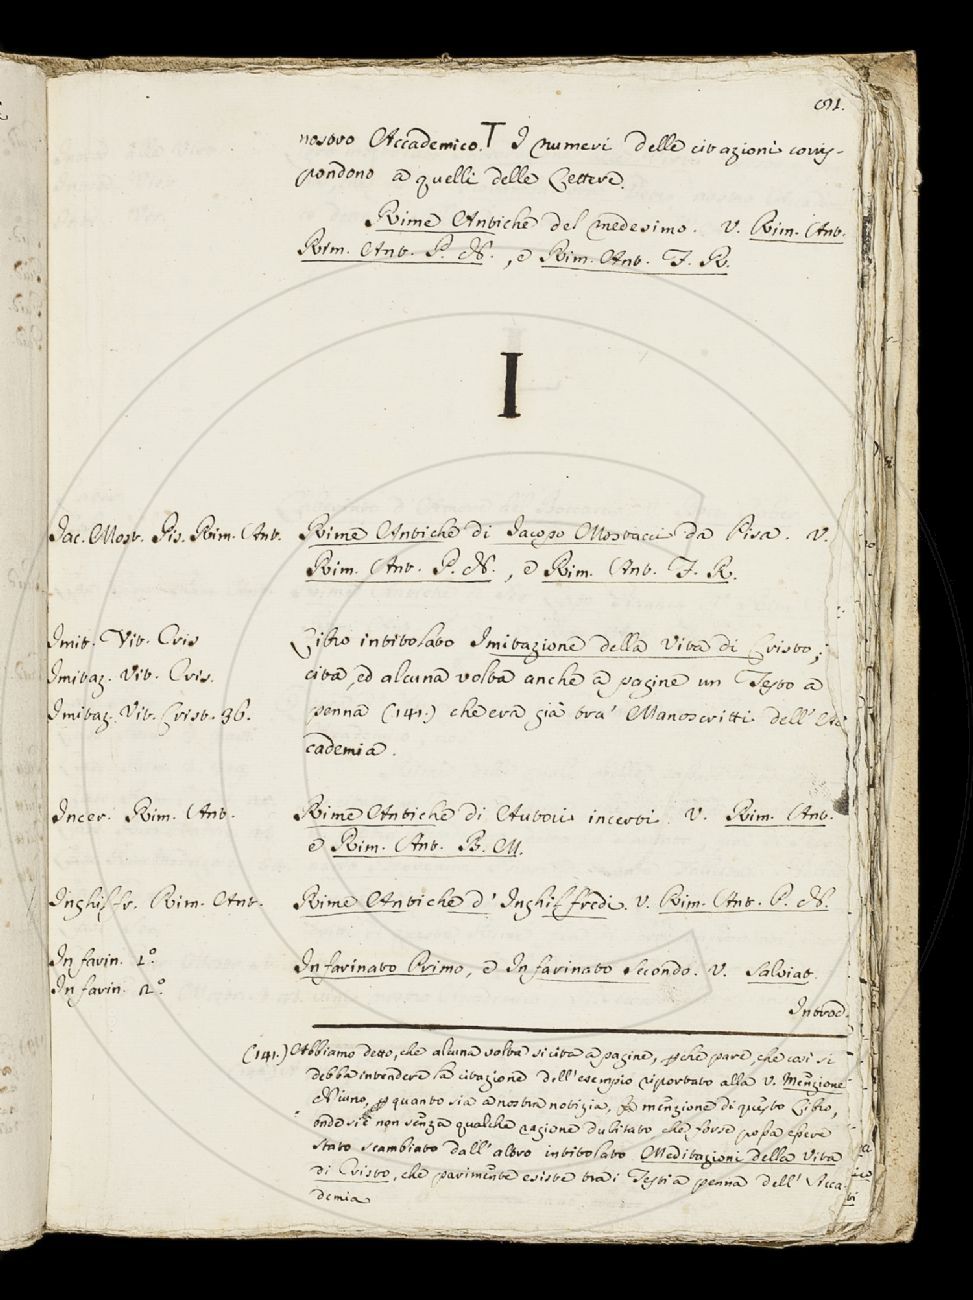 91.
nostro Accademico. T I numeri delle citazioni corris-
pondono a quelli delle Lettere.
Rime Antiche del medesimo. V. Rim. Ant.
Rim. Ant. P. N., e Rim. Ant. F. R.
I
Jac. Most. Pis. Rim. Ant. Rime Antiche di Jacopo Mostacci da Pisa. V.
Rim. Ant. P. N., e Rim. Ant. F. R.
Imit. Vit. Cris Libro intitolato Imitazione della Vita di Cristo;
Imitaz. Vit. Cris. cita, ed alcuna volta anche a pagine un Testo a
Imitaz. Vit. Crist. 36. penna (141.) che era già tra' Manoscritti dell' Ac
cademia.
Incer. Rim. Ant. Rime Antiche di Autori incerti. V. Rim. Ant.
e Rim. Ant. B. M.
Inghilfr. Rim. Ant. Rime Antiche d' Inghilfredi. V. Rim. Ant. P. N.
Infarin. 1.º Infarinato Primo, e Infarinato Secondo. V. Salviat.
Infarin. 2.º
Introd.
(141.) Abbiamo detto, che alcuna volta si cita a pagine, pche pare, che così si
debba intendere la citazione dell' esempio riportato alla V. Menzione
Niuno, p quanto sia a nostra notizia, fa menzione di questo Libro,
onde si è non senza qualche ragione dubitato che forse possa essere
stato scambiato dall' altro intitolato Meditazioni della Vita
di Cristo, che parimente esiste tra i Testi a penna dell' Acca-
demia